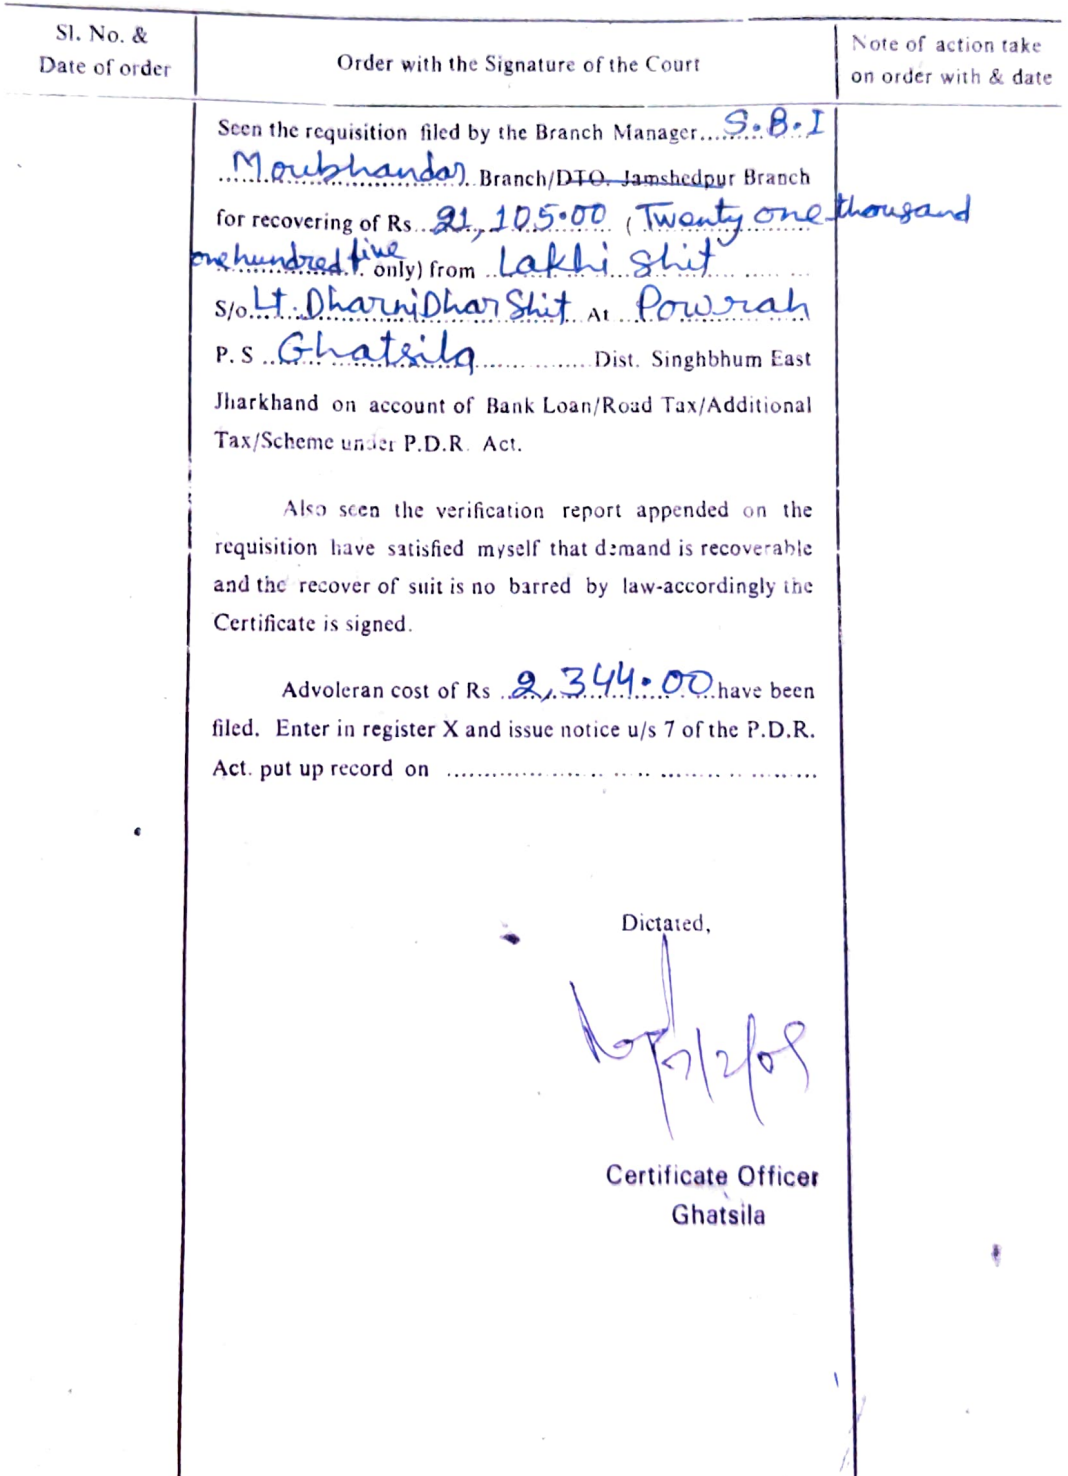 Sl. No. &
Date of order
Order with the Signature of the Court
Note of action take
on order with & date
Seen the requisition filed by the Branch Manager....S.B.I
Moubhandar Branch/DTO. Jamshedpur Branch
for recovering of Rs...21,105.00 (Twenty one thousand
one hundred five only) from ..Lakhi Shit
S/o.Lt. DharniDhar Shit At ..Powrah
P. S ..Ghatsila.................. Dist. Singhbhum East
Jharkhand on account of Bank Loan/Road Tax/Additional
Tax/Scheme under P.D.R. Act.
Also seen the verification report appended on the
requisition have satisfied myself that demand is recoverable
and the recover of suit is no barred by law-accordingly the
Certificate is signed.
Advoleran cost of Rs ..2,344.00 have been
filed. Enter in register X and issue notice u/s 7 of the P.D.R.
Act. put up record on ........................................
Dictated,
Certificate Officer
Ghatsila